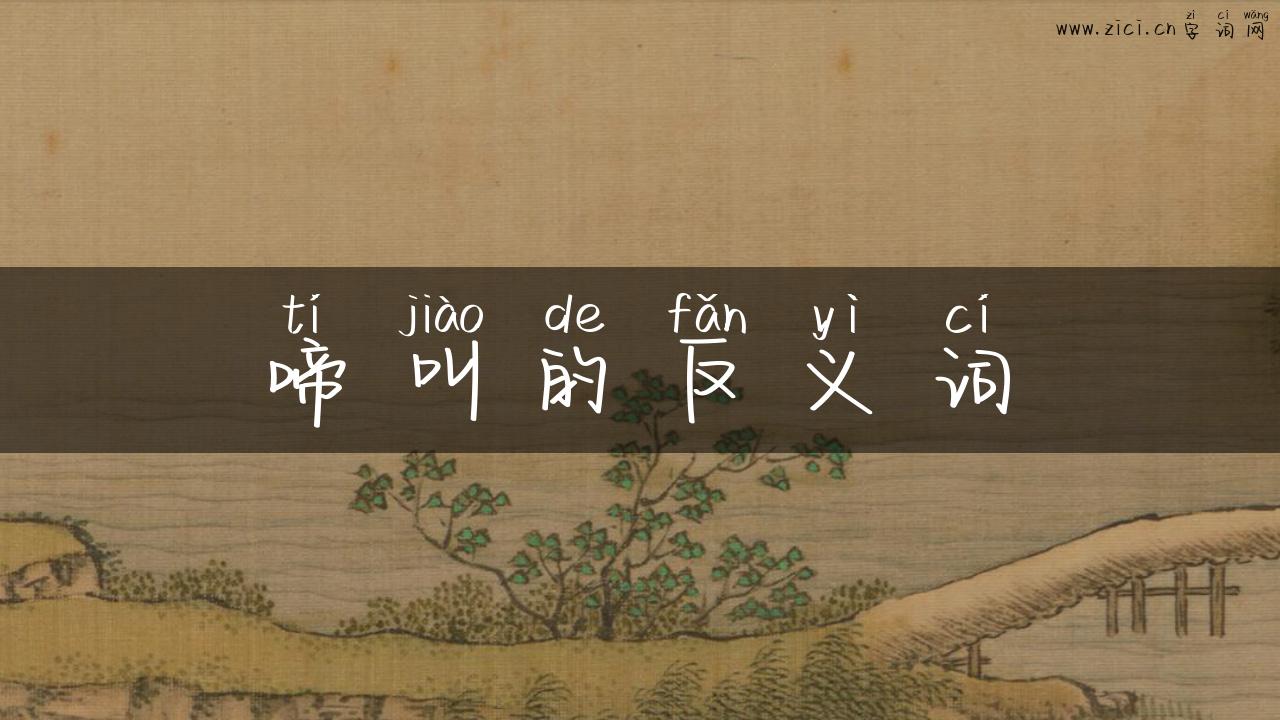 zì cí wǎng
www.zici.cn 字 词 网
tí jiào de fǎn yì cí
啼 叫 的 反 义 词